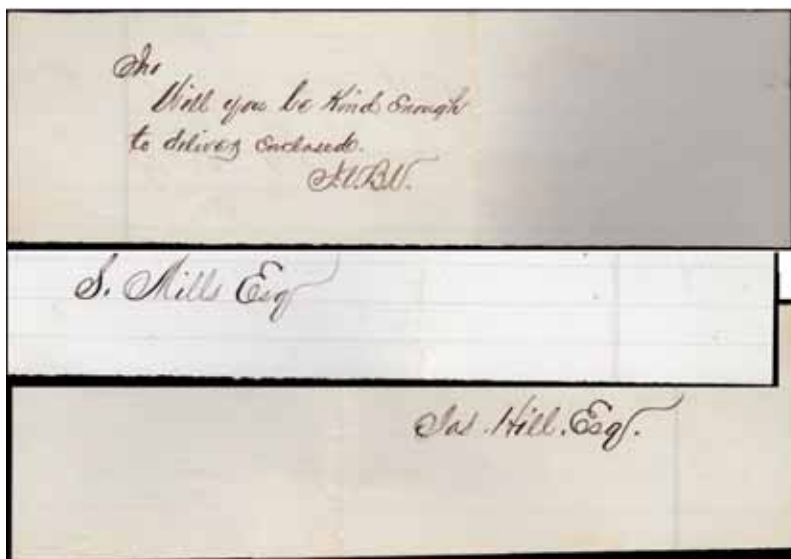 Will you be Kind Enough
to deliver Enclosed.
S. Mills Esq
Jas. Hill. Esq.